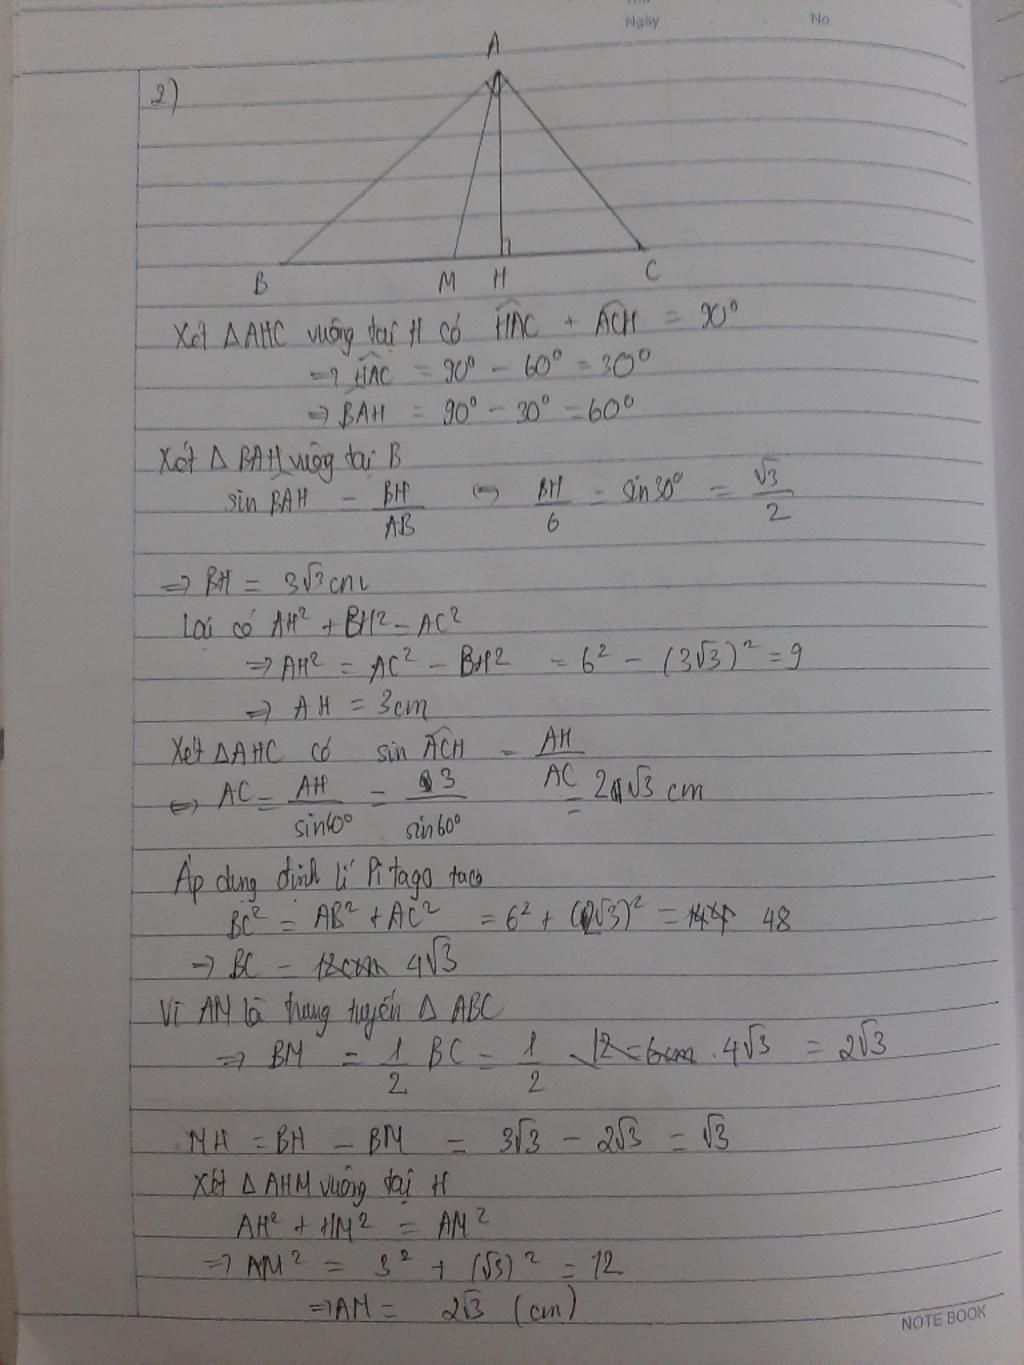 Ngày No
A
2)
B M H C
Xét ΔAHC vuông tại H có HAC + ACH = 90°
=> HAC = 90° - 60° = 30°
=> BAH = 90° - 30° = 60°
Xét Δ BAH vuông tại B
sin BAH = BH/AB <=> BH/6 = sin 30° = √3/2
=> BH = 3√3 cm
Lại có AH² + BH² = AC²
=> AH² = AC² - BH² = 6² - (3√3)² = 9
=> AH = 3cm
Xét ΔAHC có sin ACH = AH/AC
<=> AC = AH/sin60° = 3/sin60° = 2√3 cm
Áp dụng định lí Pitago ta có
BC² = AB² + AC² = 6² + (2√3)² = 48
=> BC = 12cm 4√3
Vì AM là trung tuyến Δ ABC
=> BM = 1/2 BC = 1/2 12 = 6cm . 4√3 = 2√3
MH = BH - BM = 3√3 - 2√3 = √3
Xét Δ AHM vuông tại H
AH² + HM² = AM²
=> AM² = 3² + (√3)² = 12
=> AM = 2√3 (cm)
NOTE BOOK